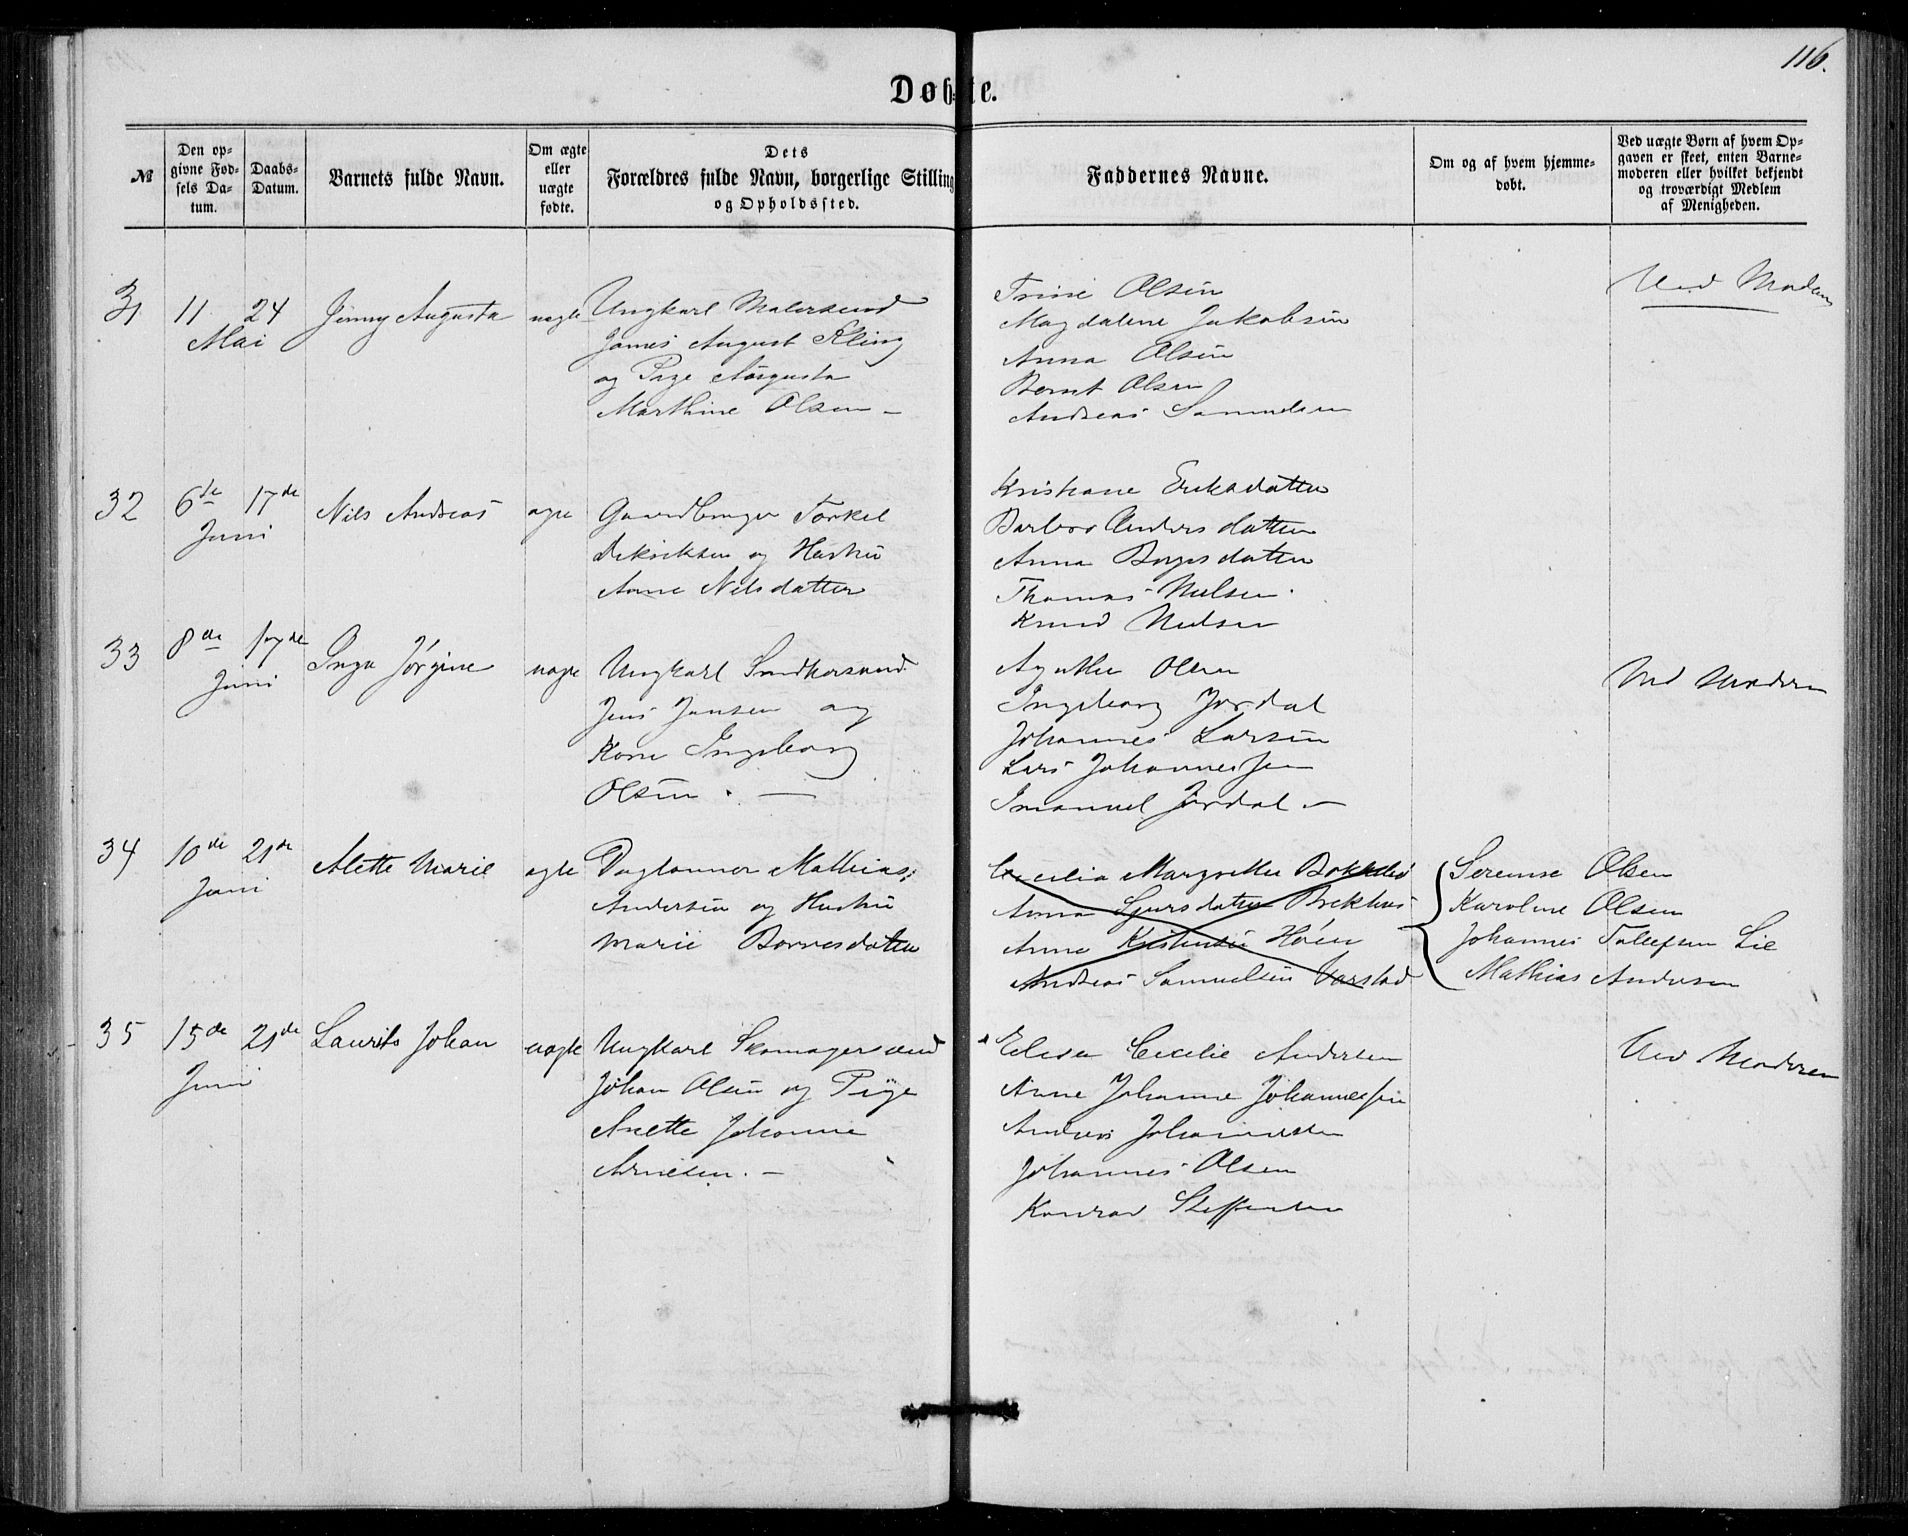 116.
Døbte.
№
Den op-
givne Fød-
sels Da-
tum.
Daabs-
Datum.
Barnets fulde Navn.
Om ægte
eller
uægte
fødte.
Dets
Forældres fulde Navn, borgerlige Stilling
og Opholdssted.
Faddernes Navne.
Om og af hvem hjemme-
døbt.
Ved uægte Børn af hvem Op-
gaven er skeet, enten Barne-
moderen eller hvilket bekjendt
og troværdigt Medlem
af Menigheden.
31 11 24 Jenny Augusta uægte Ungkarl Malersvend
Mai
James August Kling
og Pige Augusta
Marthine Olsen –
Trine Olsen
Magdalene Jakobsen
Anna Olsen
Bernt Olsen
Andreas Samuelsen
Ved Moderen
32 6te 17de Nils Andreas ægte Gaardbruger Torkel
Juni
og Hustru
Anne Nilsdatter
Kristiane Eriksdatter
Barbro Andersdatter
Anna Børgesdatter
Thomas Nielsen.
Knud Nielsen
33 8de 17de Inga Jørgine uægte Ungkarl Smedkersvend
Juni
Jens Jansen og
Kone Ingeborg
Olsen. –
Agathe Olsen
Ingeborg Jordal
Johannes Larsen
Lars Johannessen
Imanuel Jordal –
Ved Moderen
34 10de 21de Alette Marie ægte Daglønner Mathias
Juni
Andersen og Hustru
Marie Børresdatter
Cecilia Margrethe
Anna Sjursdatter Brekhus
Anne Kristensen Høien
Andreas Samuelsen
Serense Olsen
Karoline Olsen
Johannes Tollefsen Lie
Mathias Andersen
35 15de 21de Laurits Johan uægte Ungkarl Skomagersvend
Juni
Johan Olsen og Pige
Anette Johanne
Arnesen. –
Elisa Cecilie Andersen
Anne Johanne Johannessen
Andreas Johannessen
Johannes Olsen
Konrad Steffensen
Ved Moderen